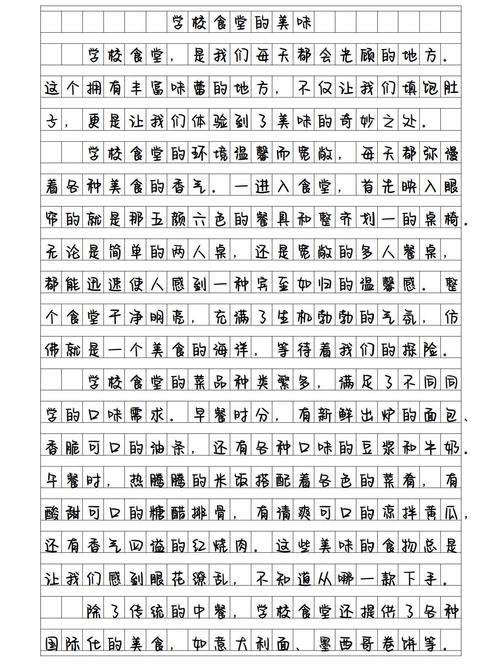 学校食堂的美味
学校食堂，是我们每天都会光顾的地方。
这个拥有丰富味蕾的地方，不仅让我们填饱肚
子，更是让我们体验到了美味的奇妙之处。
学校食堂的环境温馨而宽敞，每天都弥漫
着各种美食的香气。一进入食堂，首先映入眼
帘的就是那五颜六色的餐具和整齐划一的桌椅。
无论是简单的两人桌，还是宽敞的多人餐桌，
都能迅速使人感到一种宾至如归的温馨感。整
个食堂干净明亮，充满了生机勃勃的气氛，仿
佛就是一个美食的海洋，等待着我们的探险。
学校食堂的菜品种类繁多，满足了不同同
学的口味需求。早餐时分，有新鲜出炉的面包、
香脆可口的油条，还有各种口味的豆浆和牛奶。
午餐时，热腾腾的米饭搭配着各色的菜肴，有
酸甜可口的糖醋排骨，有清爽可口的凉拌黄瓜，
还有香气四溢的红烧肉。这些美味的食物总是
让我们感到眼花缭乱，不知道从哪一款下手。
除了传统的中餐，学校食堂还提供了各种
国际化的美食，如意大利面、墨西哥卷饼等。